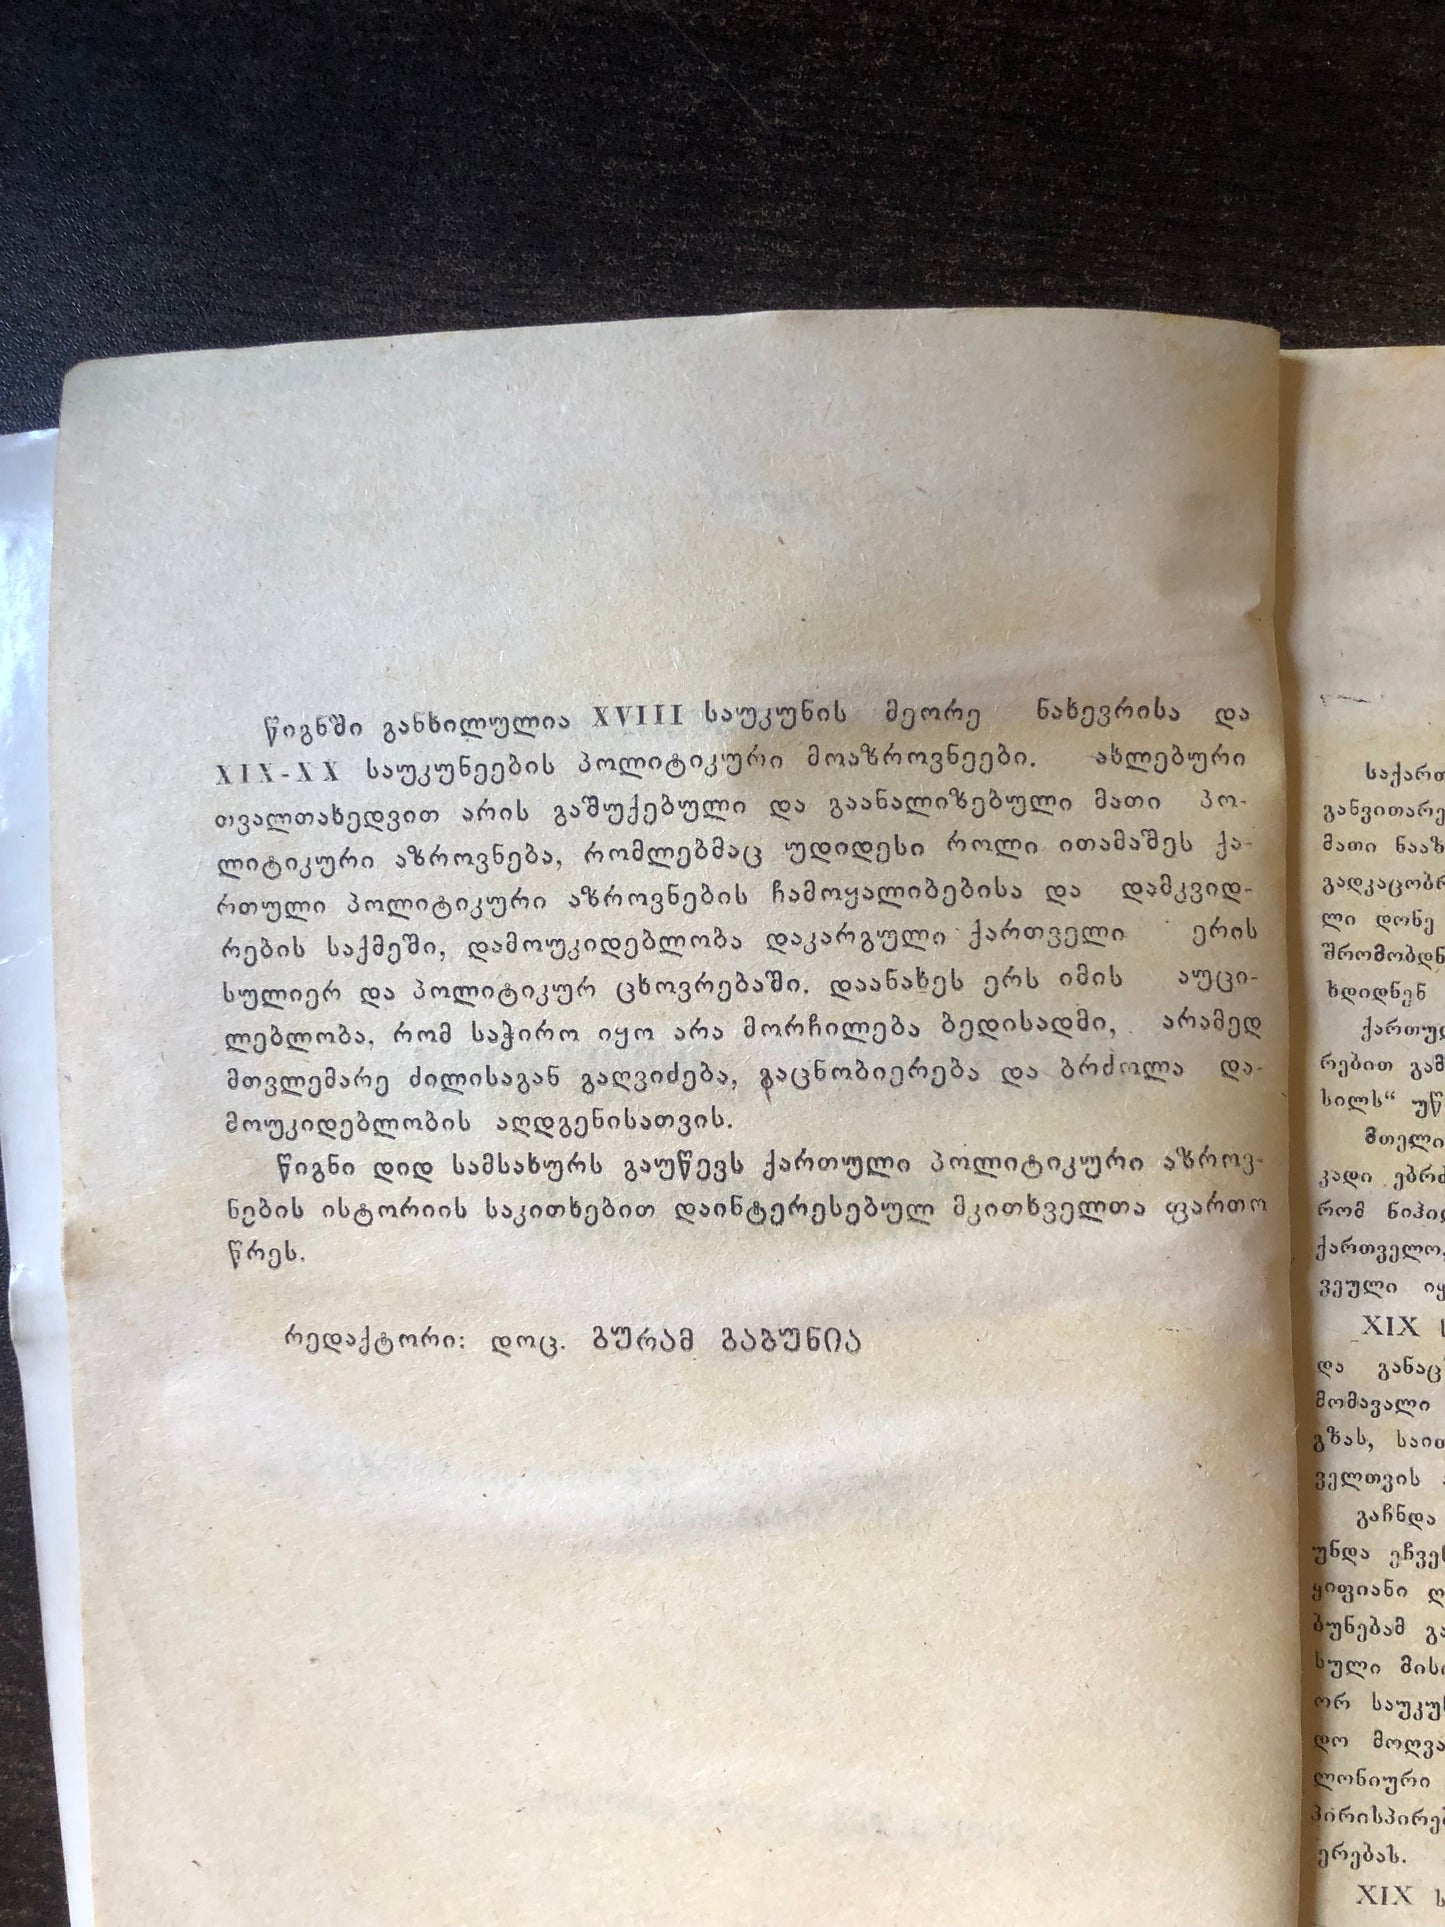 წიგნში განხილულია XVIII საუკუნის მეორე ნახევრისა და
XIX-XX საუკუნეების პოლიტიკური მოაზროვნეები. ახლებური
თვალთახედვით არის გაშუქებული და გაანალიზებული მათი პო-
ლიტიკური აზროვნება, რომლებმაც უდიდესი როლი ითამაშეს ქა-
რთული პოლიტიკური აზროვნების ჩამოყალიბებისა და დამკვიდ-
რების საქმეში, დამოუკიდებლობა დაკარგული ქართველი ერის
სულიერ და პოლიტიკურ ცხოვრებაში. დაანახეს ერს იმის აუცი-
ლებლობა, რომ საჭირო იყო არა მორჩილება ბედისადმი, არამედ
მთვლემარე ძილისაგან გაღვიძება, გაცნობიერება და ბრძოლა და-
მოუკიდებლობის აღდგენისათვის.
წიგნი დიდ სამსახურს გაუწევს ქართული პოლიტიკური აზროვ-
ნების ისტორიის საკითხებით დაინტერესებულ მკითხველთა ფართო
წრეს.
რედაქტორი: დოც. გურამ გაბუნია
განვითარე
მათი
ლი დონე
ხდიდნენ
რებით
სილს“
მთელი
კადი
რომ
ქართველო,
ვეული
XIX
და
მომავალი
გზას,
ველთვის
გაჩნდა
უნდა
ყიფიანი
ბუნებამ
სული
ორ
დო
ლონიური
ერებას.
XIX